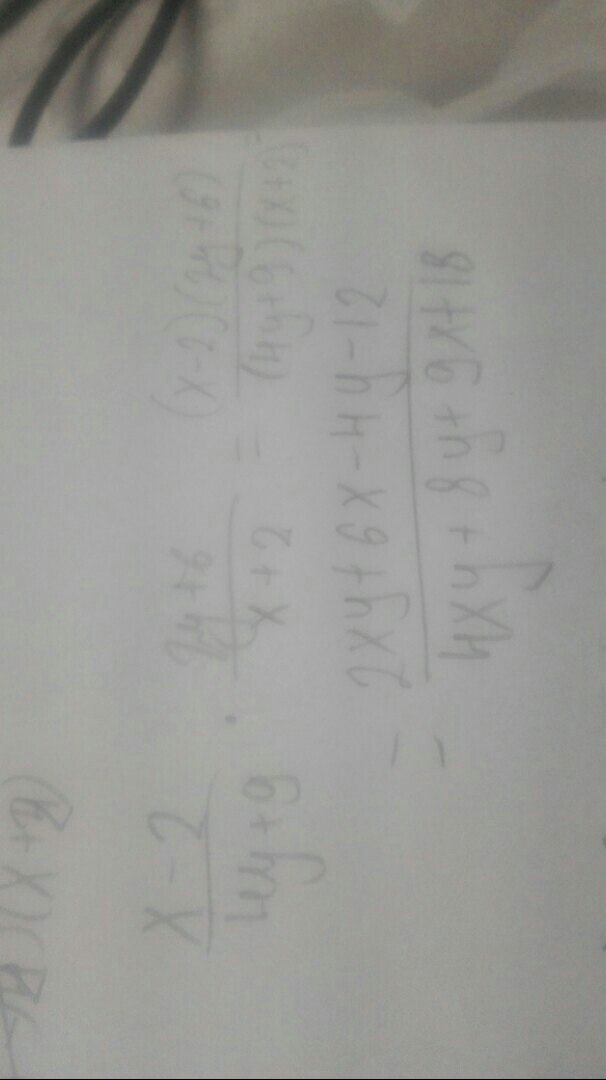 )(x+y)
x-2/4y+9 · 2y+6/x+2 = (x-2)(2y+6)/(4y+9)(x+2) =
= 2xy+6x-4y-12/4xy+8y+9x+18